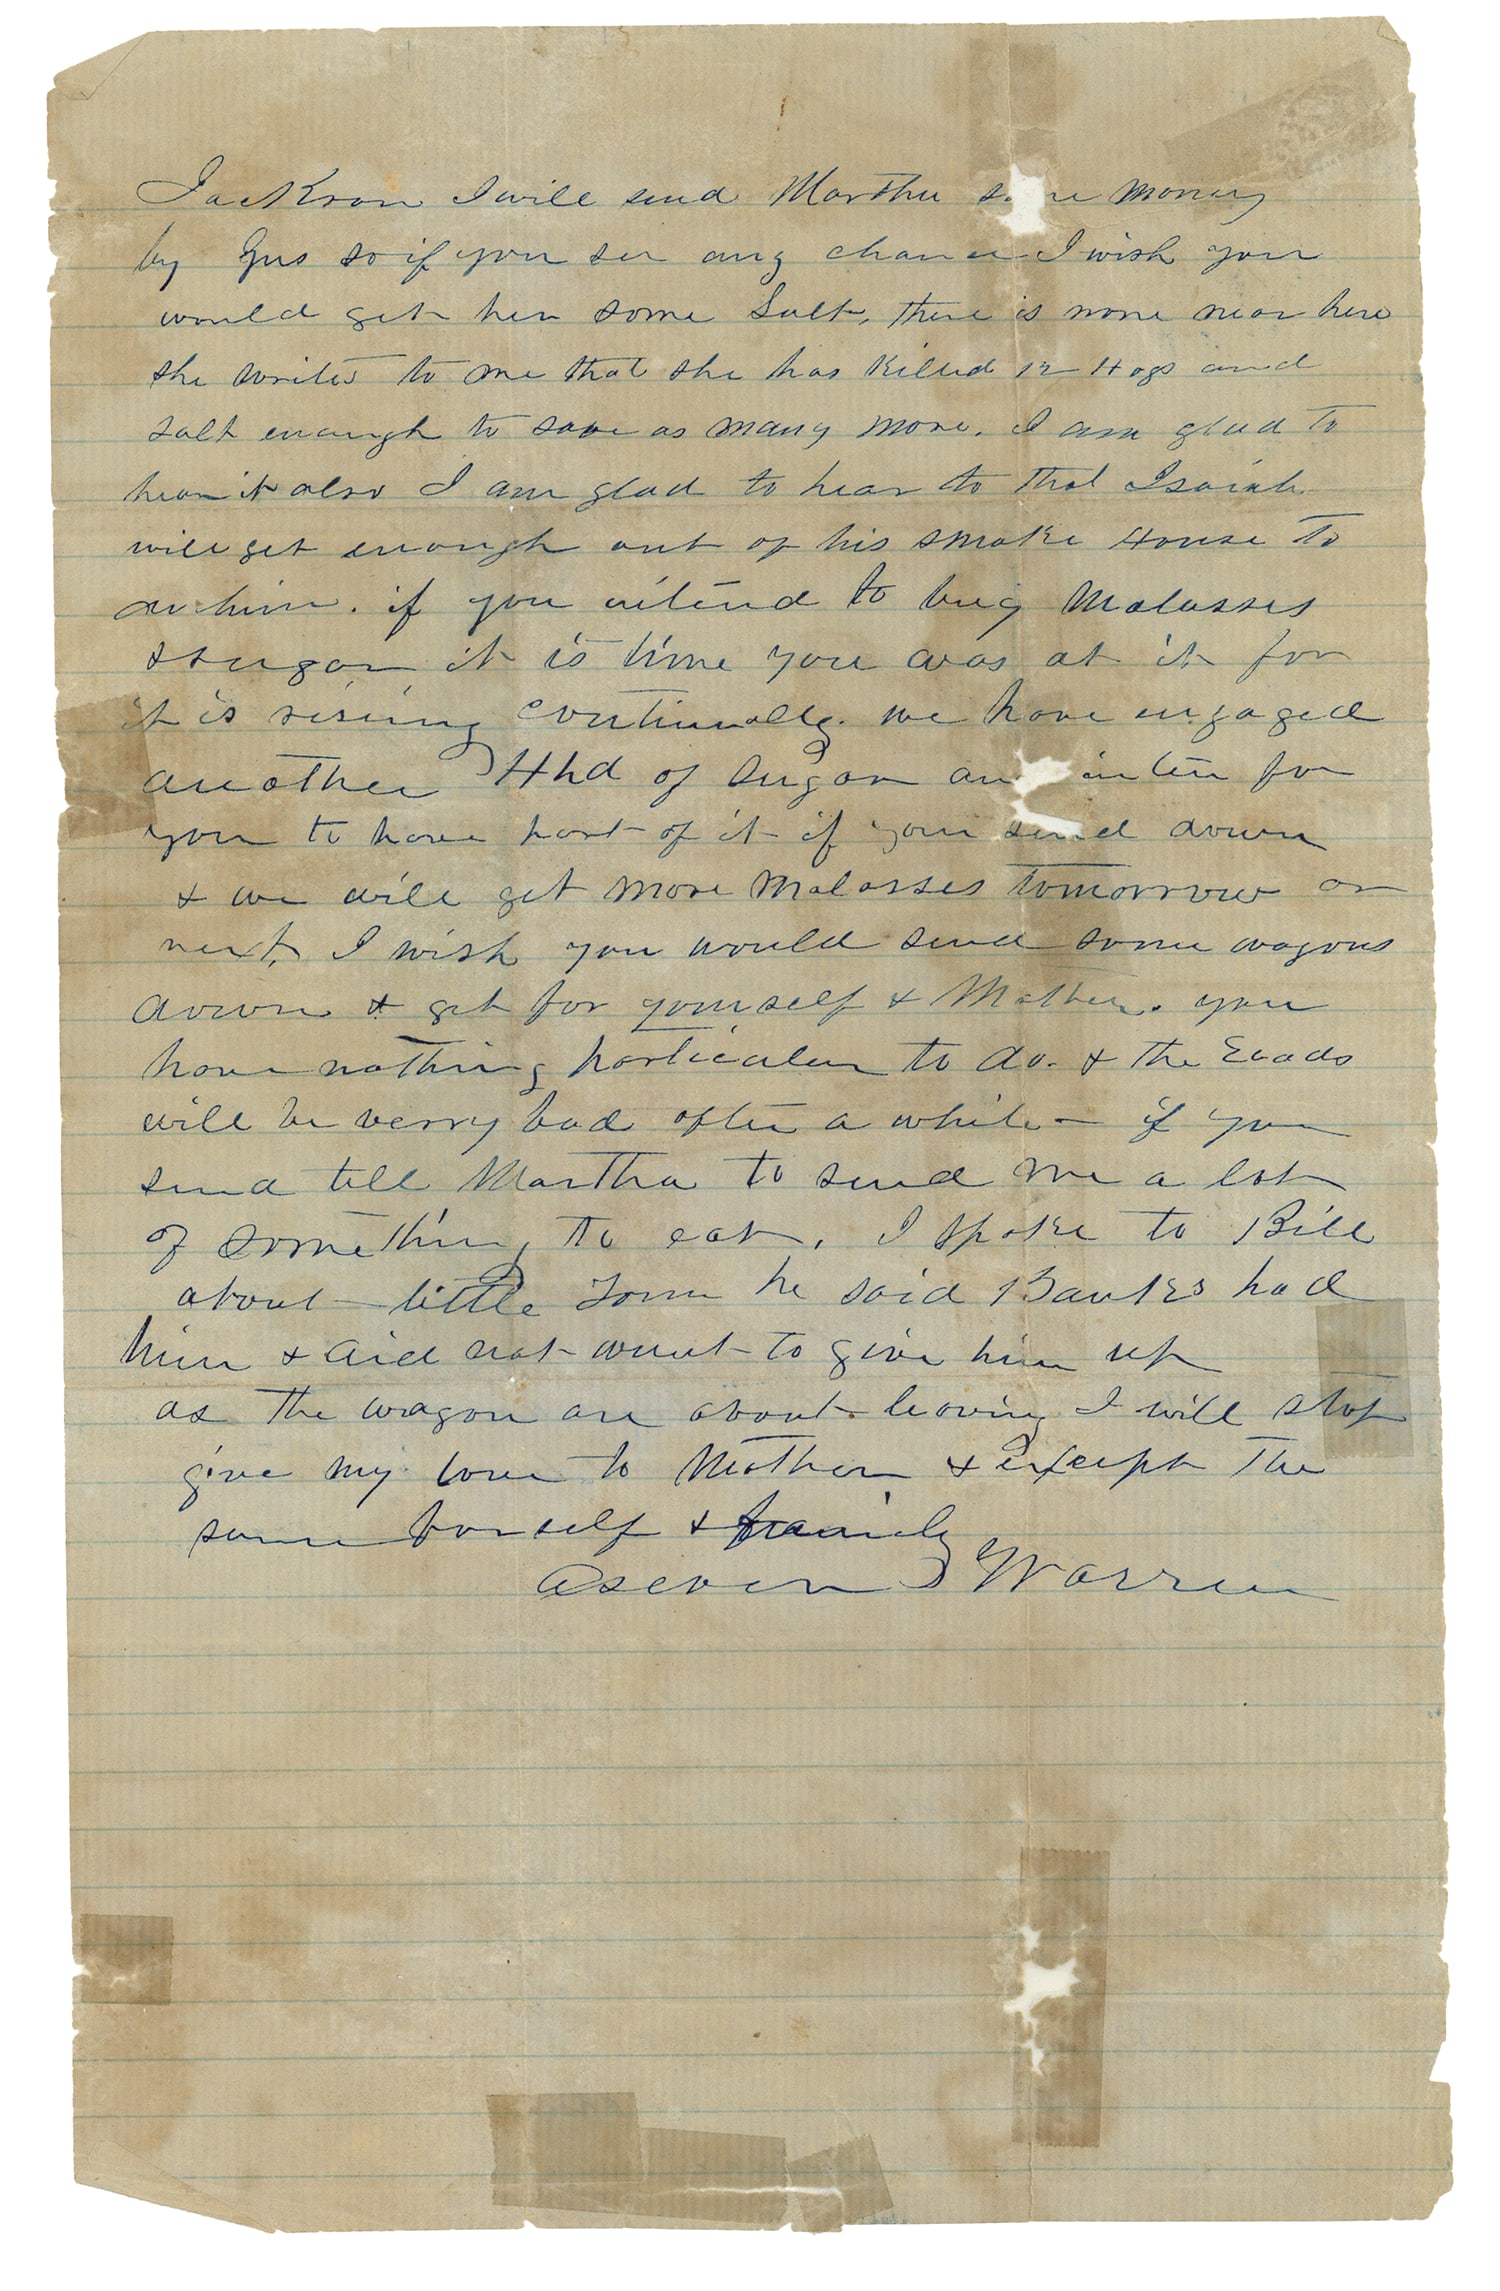 Jackson I will send Martha some money
by Gus so if you see any chance I wish you
would get her some Salt, there is none near here
she writes to me that she has killed 12 Hogs and
salt enough to save as many more. I am glad to
hear it also I am glad to hear to that Isaiah
will get enough out of his smoke House to
do him. if you intend to buy Molasses
& sugar it is time you was at it for
it is rising continually. we have engaged
another Hhd of sugar and inten for
you to have part of it if you send down
& we will get more Molasses tomorrow or
next, I wish you would send some wagons
down & get for yourself & Mother. you
have nothing particular to do. & the Roads
will be verry bad after a while - if you
send tell Martha to send me a lot
of something to eat, I spoke to Bill
about little Tom he said Banks had
him & did not want to give him up
as the wagon are about leaving I will stop
give my love to Mother & except the
same for self & family
Warren